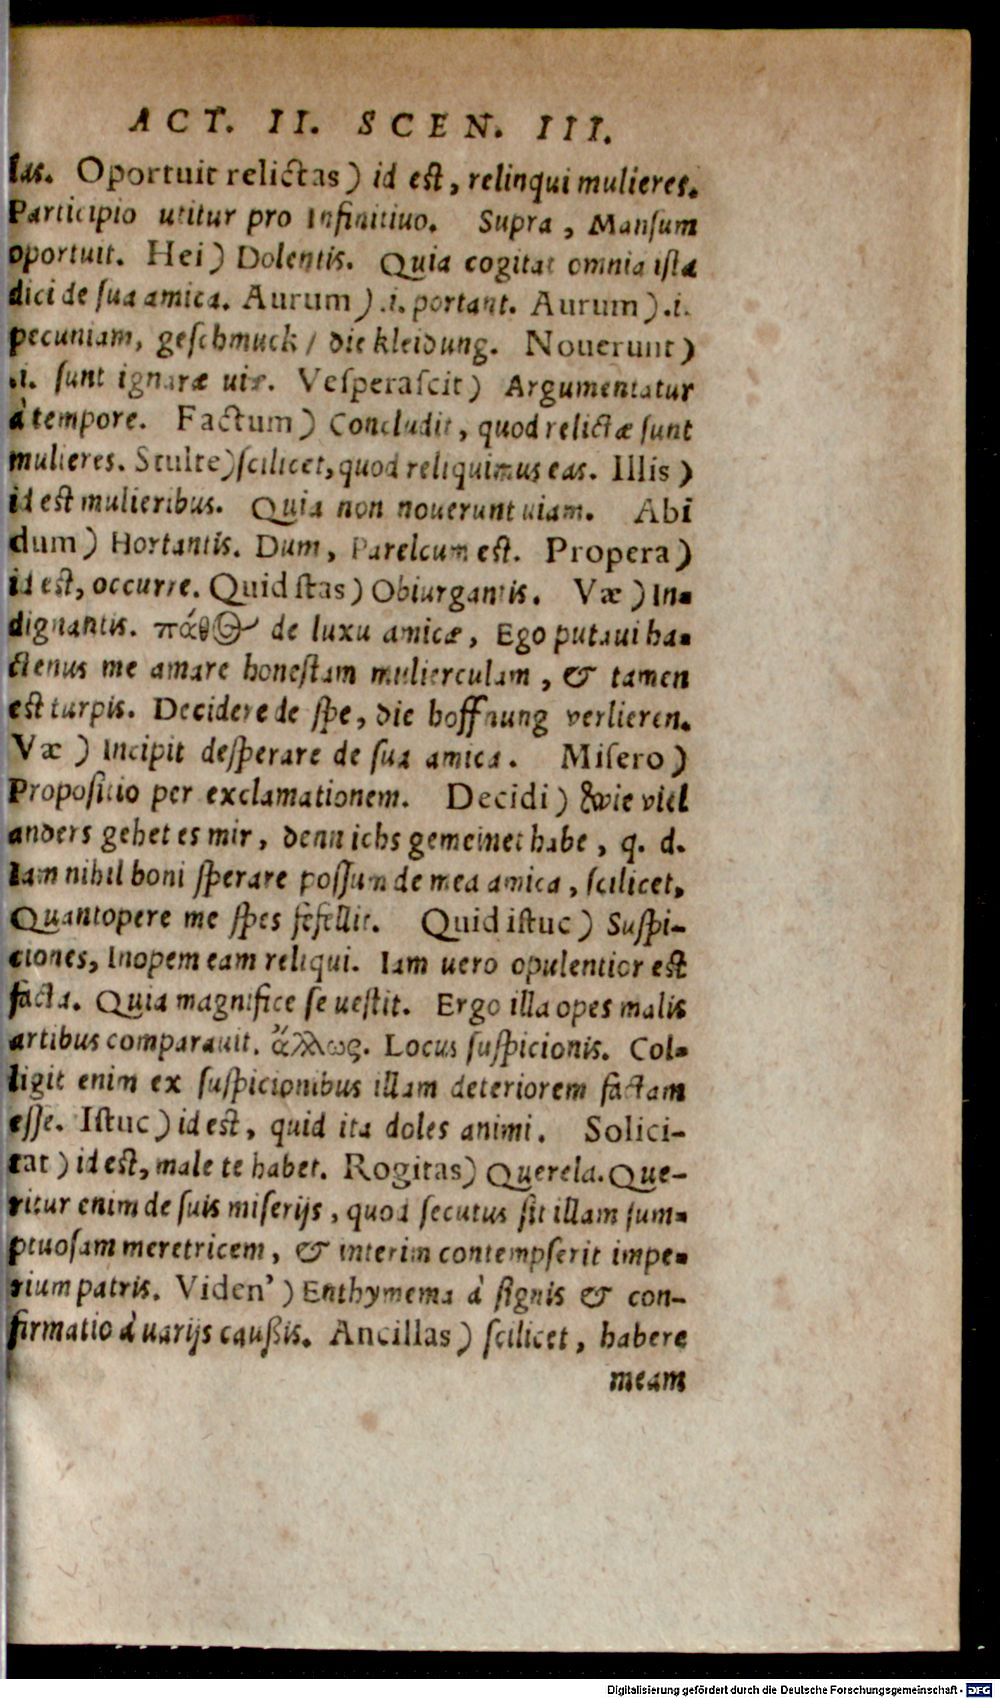 ACT. II. SCEN. III.
las. Oportuit relictas) id est, relinqui mulieres.
Participio utitur pro Infinitiuo. Supra, Mansum
oportuit. Hei) Dolentis. Quia cogitat omnia ista
dici de sua amica. Aurum).i. portant. Aurum).i.
pecuniam, geschmuck / die kleidung. Nouerunt)
.i. sunt ignaræ uiæ. Vesperascit) Argumentatur
à tempore. Factum) Concludit, quod relictæ sunt
mulieres. Stulte) scilicet, quod reliquimus eas. Illis)
id est mulieribus. Quia non nouerunt uiam. Abi
dum) Hortantis. Dum, Parelcum est. Propera)
id est, occurre. Quid stas) Obiurgantis. Væ) In-
dignantis. πάθος de luxu amicæ, Ego putaui ha-
ctenus me amare honestam mulierculam, & tamen
est turpis. Decidere de spe, die hoffnung verlieren.
Væ) Incipit desperare de sua amica. Misero)
Propositio per exclamationem. Decidi) wie viel
anders gehet es mir, denn ichs gemeinet habe, q. d.
Iam nihil boni sperare possum de mea amica, scilicet,
Quantopere me spes fefellit. Quid istuc) Suspi-
ciones, Inopem eam reliqui. Iam uero opulentior est
facta. Quia magnifice se uestit. Ergo illa opes malis
artibus comparauit. ἄλλως. Locus suspicionis. Col-
ligit enim ex suspicionibus illam deteriorem factam
esse. Istuc) id est, quid ita doles animi. Solici-
tat) id est, male te habet. Rogitas) Querela. Que-
ritur enim de suis miserijs, quod secutus sit illam sum-
ptuosam meretricem, & interim contempserit impe-
rium patris. Viden') Enthymema à signis & con-
firmatio à uarijs caußis. Ancillas) scilicet, habere
meam
Digitalisierung gefördert durch die Deutsche Forschungsgemeinschaft - DFG